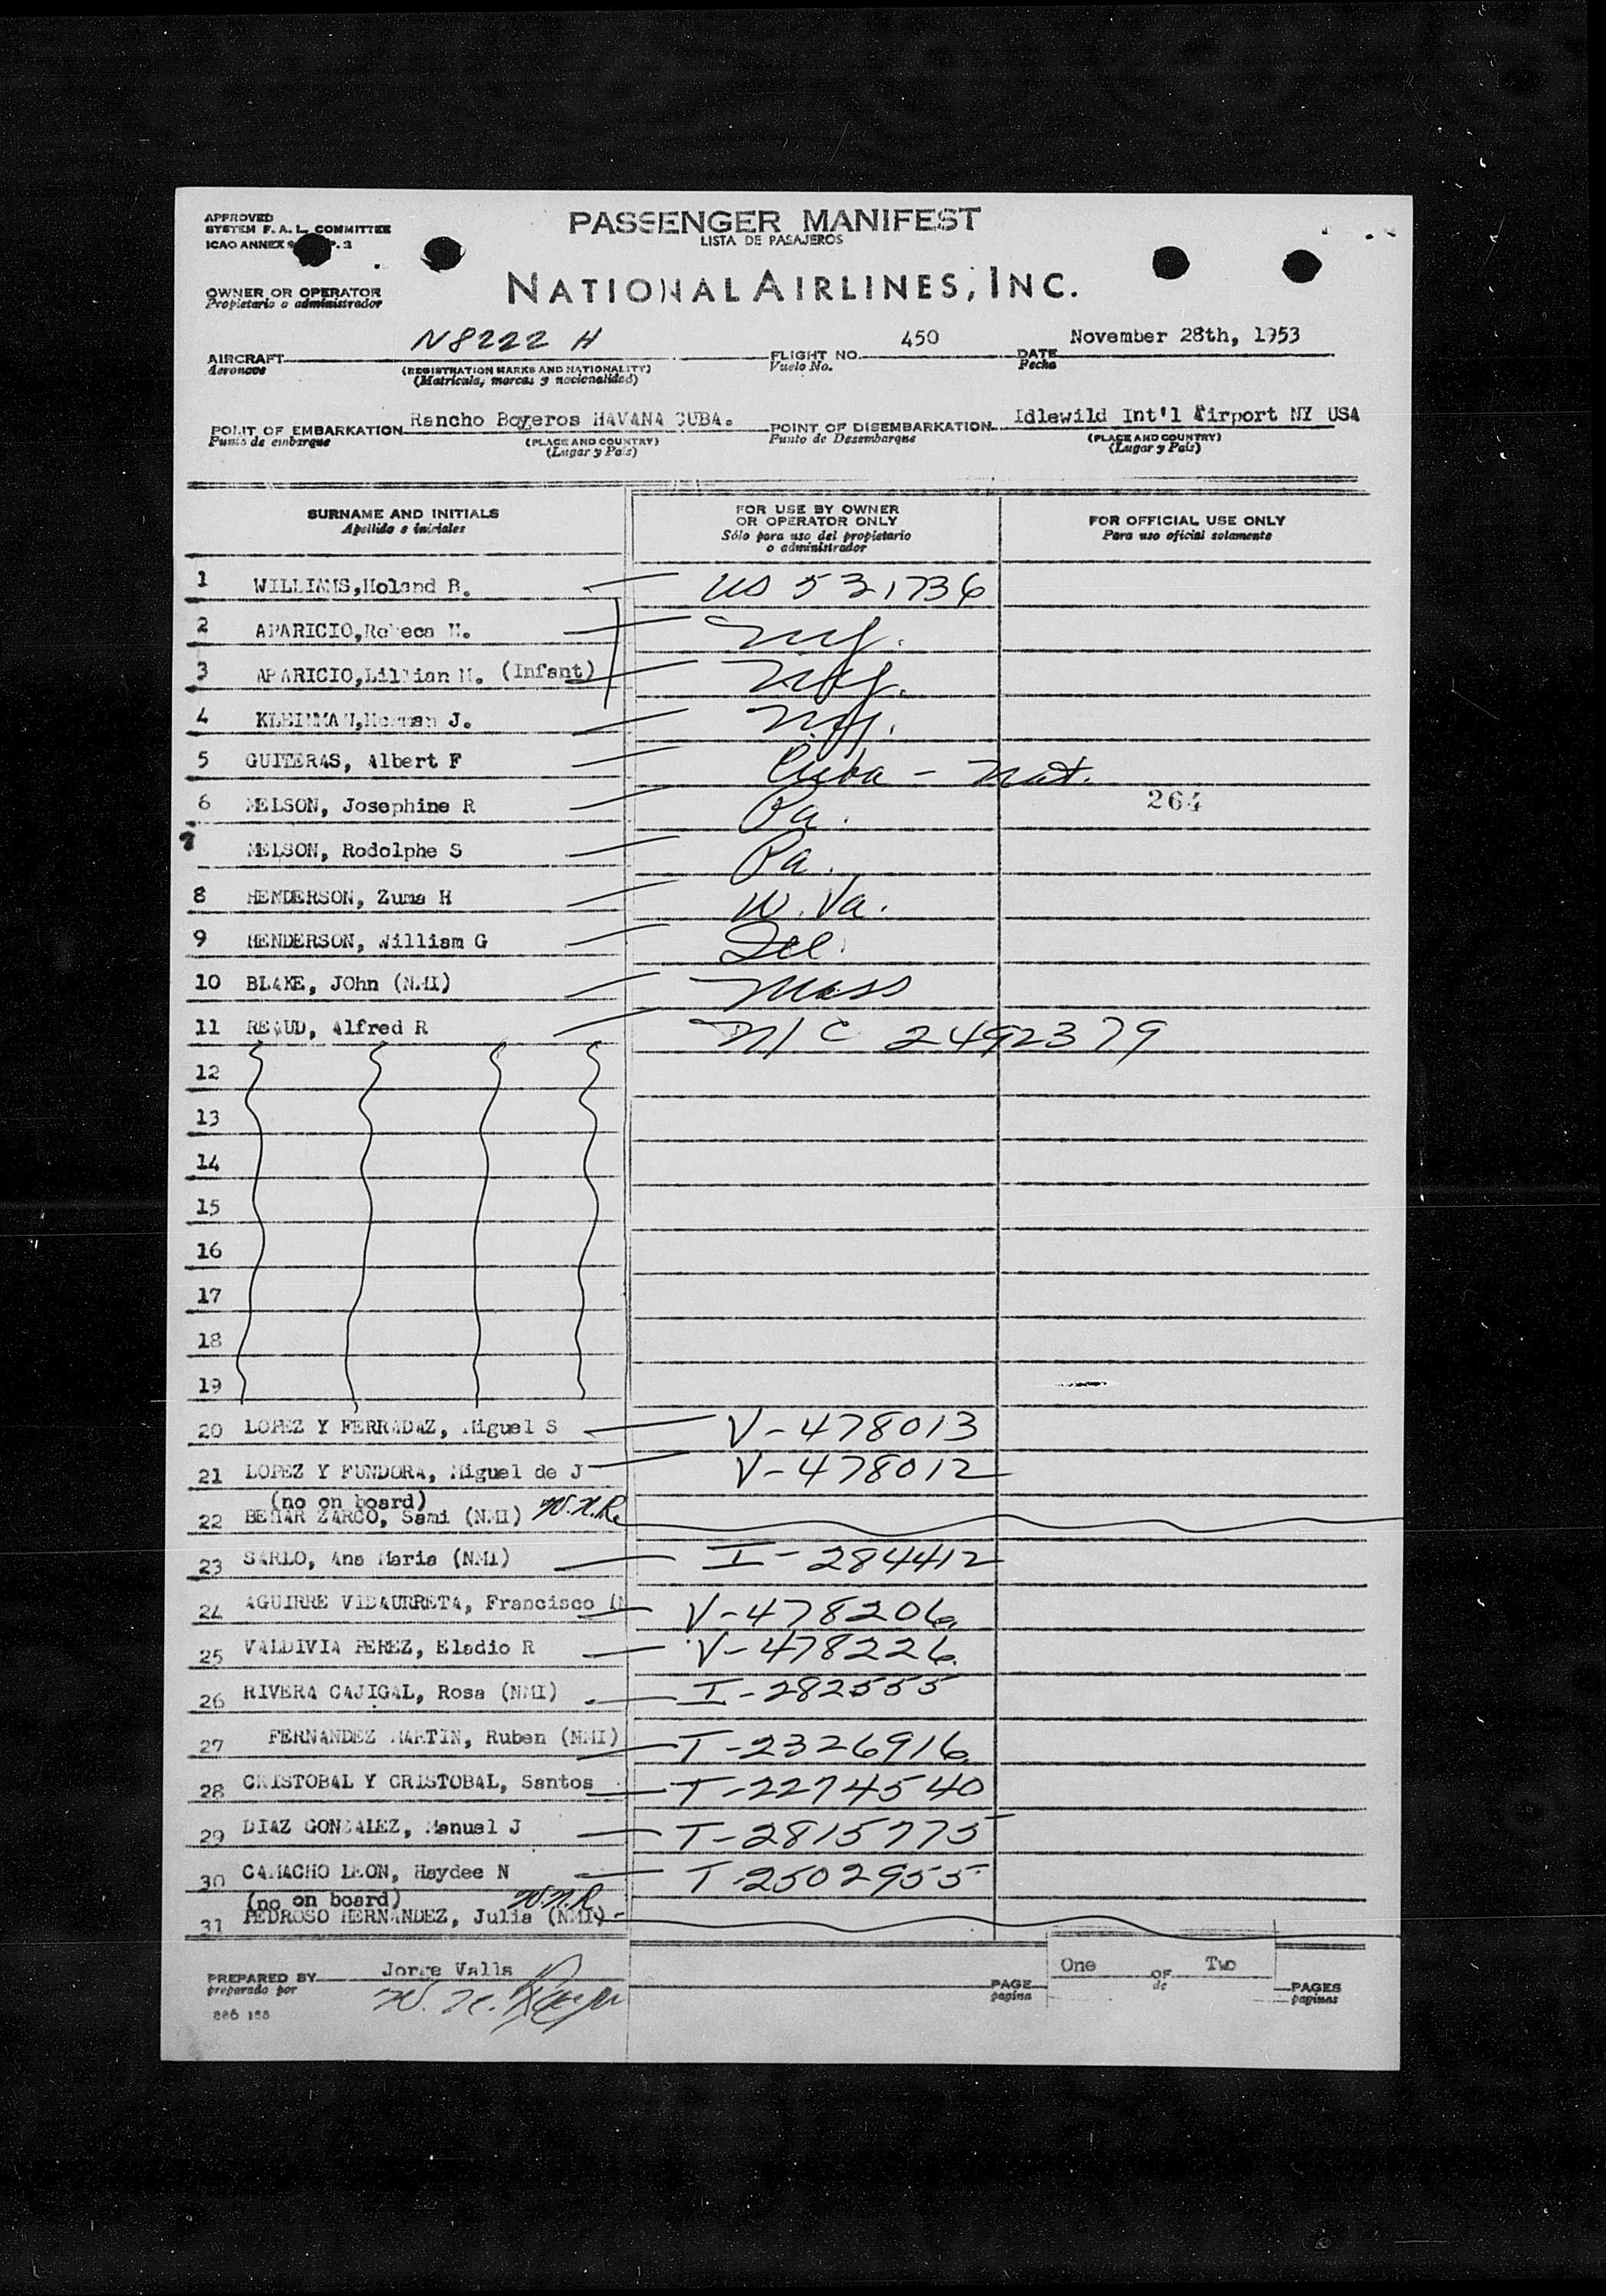 APPROVED
SYSTEM F. A. L. COMMITTEE
ICAO ANNEX 9 P. 3
PASSENGER MANIFEST
LISTA DE PASAJEROS
OWNER OR OPERATOR
Propietario o administrador
NATIONAL AIRLINES, INC.
AIRCRAFT N8222 H FLIGHT NO. 450 DATE November 28th, 1953
Aeronave (REGISTRATION MARKS AND NATIONALITY) Vuelo No. Fecha
(Matricula, marcas y nacionalidad)
POINT OF EMBARKATION Rancho Boyeros HAVANA CUBA. POINT OF DISEMBARKATION Idlewild Int'l Airport NY USA
Punto de embarque (PLACE AND COUNTRY) Punto de Desembarque (PLACE AND COUNTRY)
(Lugar y País) (Lugar y País)
SURNAME AND INITIALS
Apellido e iniciales
FOR USE BY OWNER
OR OPERATOR ONLY
Sólo para uso del propietario
o administrador
FOR OFFICIAL USE ONLY
Para uso oficial solamente
1 WILLIAMS, B. US 531736
2 APARICIO, Rebeca M. NY.
3 APARICIO,Lillian M. (Infant) NY.
4 KLEINMAN,Herman J. NY.
5 GUITERAS, Albert F Cuba - Nat.
6 MELSON, Josephine R Pa. 264
7 MELSON, Rodolphe S Pa.
8 HENDERSON, Zuma H W. Va.
9 HENDERSON, William G
10 BLAKE, JOhn (NMI) Mass
11 REAUD, Alfred R N/C 2492379
12
13
14
15
16
17
18
19
20 LOPEZ Y FERRADAZ, Miguel S V-478013
21 LOPEZ Y FUNDORA, Miguel de J V-478012
(no on board)
22 BEHAR ZARCO, Sami (NMI) W.N.R.
23 SARLO, Ana Maria (NMI) I-284412
24 AGUIRRE VIDAURRETA, Francisco (N V-478206
25 VALDIVIA PEREZ, Eladio R V-478226
26 RIVERA CAJIGAL, Rosa (NMI) I-282555
27 FERNANDEZ MARTIN, Ruben (NMI) T-2326916
28 CRISTOBAL Y CRISTOBAL, Santos T-2274540
29 DIAZ GONZALEZ, Manuel J T-2815775
30 CAMACHO LEON, Haydee N T-2502955
(no on board) W.N.R
31 PEDROSO HERNANDEZ, Julia (NMI)-
PREPARED BY Jorge Valls PAGE One OF Two PAGES
preparado por pagina de paginas
W. N.